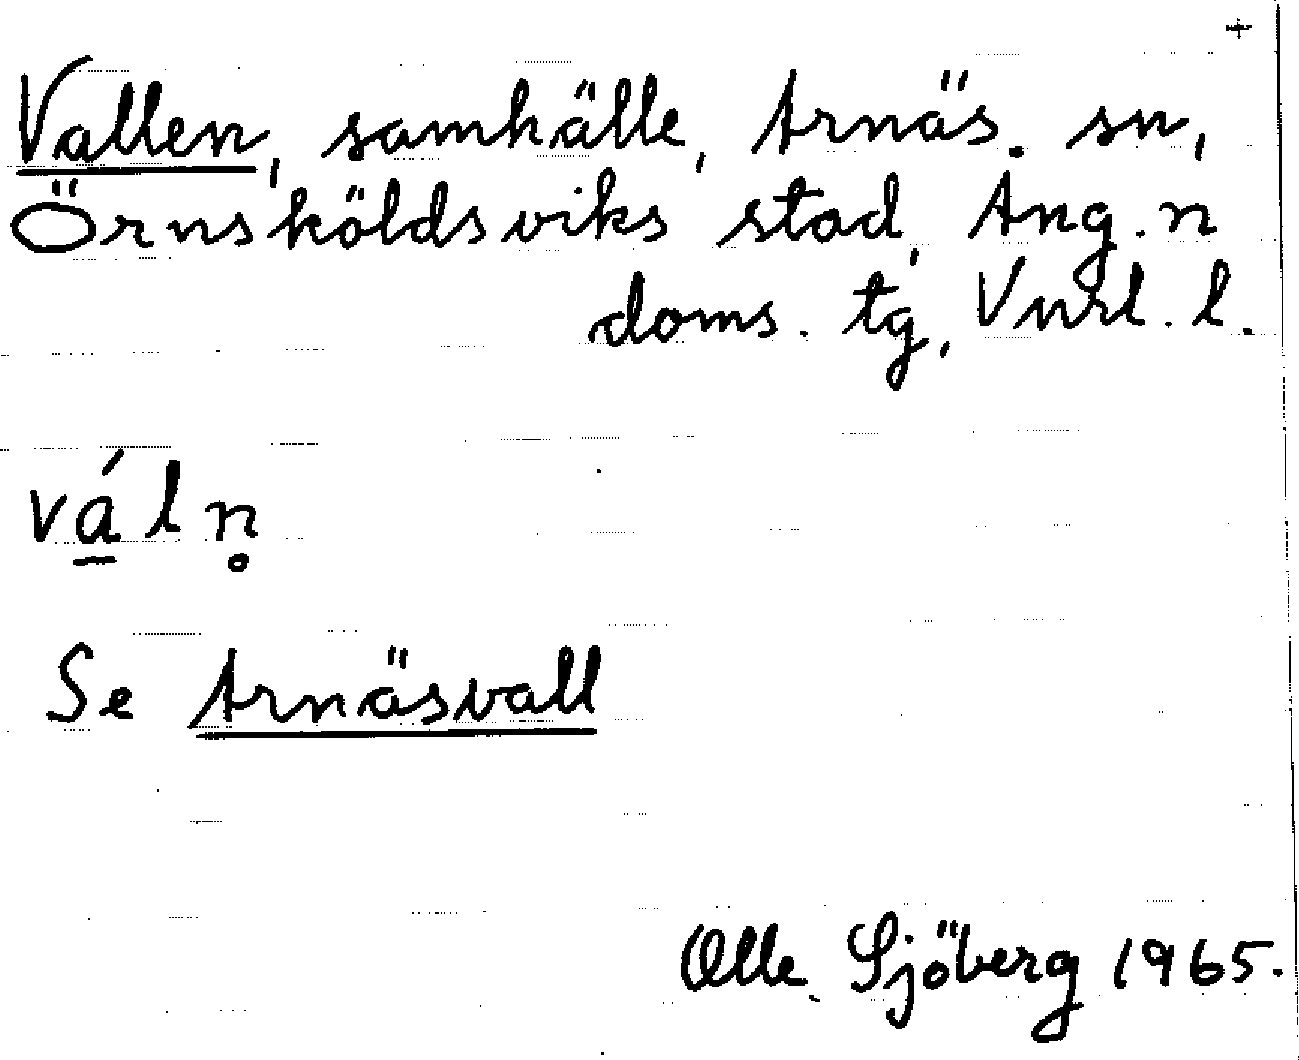 +
Vallen, samhälle, Arnäs. sn,
Örnsköldsviks stad, Ång. n
doms. tg, Vnrl. l.
vá̱l n̥
Se Arnäsvall
Olle Sjöberg 1965.